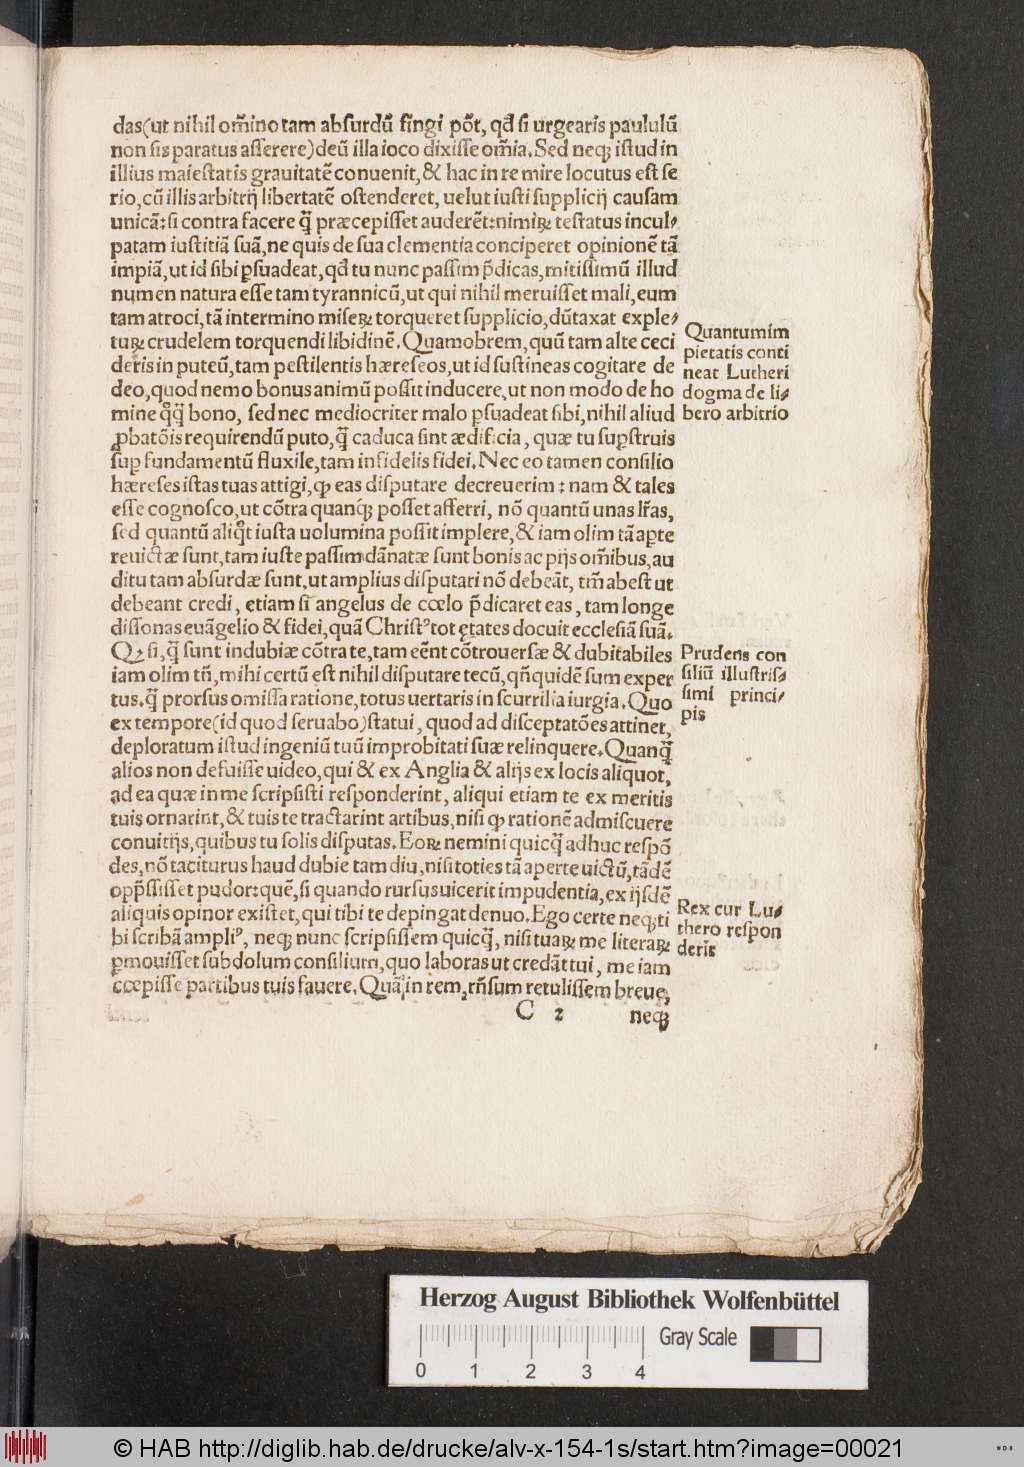 das(ut nihil om̃ino tam absurdũ fingi põt, qđ si urgearis paululũ
non sis paratus asserere)deũ illa ioco dixisse om̃ia. Sed neq; istud in
illius maiestatis grauitatẽ conuenit, & hac in re mire locutus est se
rio, cũ illis arbitrij libertatẽ ostenderet, uelut iusti supplicij causam
unicã: si contra facere q̃ præcepisset auderẽt: nimiꝝ testatus incul⸗
patam iustitiã suã, ne quis de sua clementia conciperet opinionẽ tã
impiã, ut id sibi ꝑsuadeat, qđ tu nunc passim p̃dicas, mitissimũ illud
numen natura esse tam tyrannicũ, ut qui nihil meruisset mali, eum
tam atroci, tã intermino miseꝝ torqueret supplicio, dũtaxat exple⸗
tuꝝ crudelem torquendi libidinẽ. Quamobrem, quũ tam alte ceci
deris in puteũ, tam pestilentis hæreseos, ut id sustineas cogitare de
deo, quod nemo bonus animũ possit inducere, ut non modo de ho
mine q̊q̃ bono, sed nec mediocriter malo ꝑsuadeat sibi, nihil aliud
ꝓbatõis requirendũ puto, q̃ caduca sint ædificia, quæ tu suꝑstruis
suꝑ fundamentũ fluxile, tam infidelis fidei. Nec eo tamen consilio
hæreses istas tuas attigi, ꝙ eas disputare decreuerim: nam & tales
esse cognosco, ut cõtra quanq̃; posset afferri, nõ quantũ unas lr̃as,
sed quantũ aliq̊t iusta uolumina possit implere, & iam olim tã aꝑte
reuictæ sunt, tam iuste passim dãnatæ sunt bonis ac pijs om̃ibus, au
ditu tam absurdæ sunt, ut amplius disputari nõ debeãt, tm̃ abest ut
debeant credi, etiam si angelus de cœlo p̃dicaret eas, tam longe
dissonas euãgelio & fidei, quã Christꝰ tot ętates docuit ecclesiã suã.
Qꝫ si, q̃ sunt indubiæ cõtra te, tam eẽnt cõtrouersæ & dubitabiles
iam olim tñ, mihi certũ est nihil disputare tecũ, qñquidẽ sum exper
tus, q̃ prorsus omissa ratione, totus uertaris in scurrilia iurgia. Quo
ex tempore(id quod seruabo)statui, quod ad disceptatões attinet,
deploratum istud ingeniũ tuũ improbitati suæ relinquere. Quanq̃
alios non defuisse uideo, qui & ex Anglia & alijs ex locis aliquot,
ad ea quæ in me scripsisti responderint, aliqui etiam te ex meritis
tuis ornarint, & tuis te tractarint artibus, nisi ꝙ rationẽ admiscuere
conuitijs, quibus tu solis disputas. Eoꝝ nemini quicq̃ adhuc respõ
des, nõ taciturus haud dubie tam diu, nisi toties tã aperte uictũ, tãdẽ
opp̃ssisset pudor: quẽ, si quando rursus uicerit impudentia, ex ijsdẽ
aliquis opinor existet, qui tibi te depingat denuo. Ego certe neq; ti
bi scribã ampliꝰ, neq; nunc scripsissem quicq̃, nisi tuaꝝ me literaꝝ
ꝑmouisset subdolum consilium, quo laboras ut credãt tui, me iam
cœpisse partibus tuis fauere. Quã in rem, rñsum retulissem breue,
C 2 neq;
Quantum im
pietatis conti
neat Lutheri
dogma de li⸗
bero arbitrio
Prudens con
siliũ illustris⸗
simi princi⸗
pis
Rex cur Lu⸗
thero respon
derit
Herzog August Bibliothek Wolfenbüttel
0 1 2 3 4
Gray Scale
© HAB http://diglib.hab.de/drucke/alv-x-154-1s/start.htm?image=00021